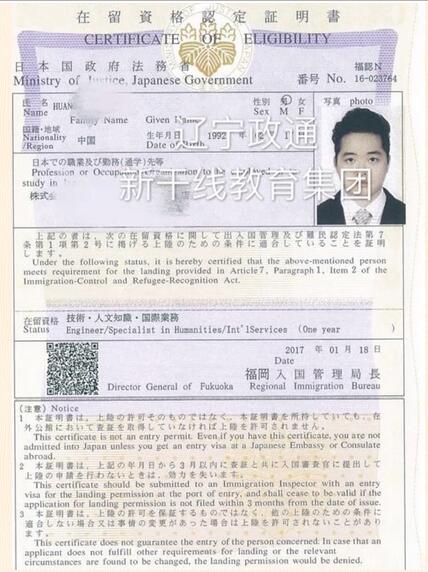 在留資格認定証明書
CERTIFICATE OF ELIGIBILITY
日本国政府法務省
福認N
Ministry of Justice, Japanese Government
番号 No. 16-023764
氏名
Name HUANG
Family Name Given Name
性別 男 女
Sex M F
写真 photo
国籍・地域
Nationality/Region 中国
生年月日 1992
Date of Birth
辽宁政通
日本での職業及び勤務(通学)先等
Profession or Occupation
study in
株式
新干线教育集团
上記の者は、次の在留資格に関して出入国管理及び難民認定法第7
条第1項第2号に掲げる上陸のための条件に適合していることを証明
します。
Under the following status, it is hereby certified that the above-mentioned person
meets requirement for the landing provided in Article 7, Paragraph 1, Item 2 of the
Immigration-Control and Refugee-Recognition Act.
在留資格 技術・人文知識・国際業務
Status Engineer/Specialist in Humanities/Int'lServices (One year )
2017 年 01 月 18 日
福岡 入国管理局長
Director General of Fukuoka Regional Immigration Bureau
(注意) Notice
1 本証明書は、上陸の許可そのものではなく、本証明書を所持していても、在
外公館において査証を取得していなければ上陸を許可されません。
This certificate is not an entry permit. Even if you have this certificate, you are not
admitted into Japan unless you get an entry visa at a Japanese Embassy or Consulate
abroad.
2 本証明書は、上記の年月日から3月以内に査証と共に入国審査官に提出して
上陸の申請を行わないときは、効力を失います。
This certificate should be submitted to an Immigration Inspector with an entry
visa for the landing permission at the port of entry, and shall cease to be valid if the
application for landing permission is not filed within 3 months from the date of issue.
3 本証明書は、上陸の許可を保証するものではなく、他の上陸のための条件に
適合しない場合又は事情の変更があった場合は上陸を許可されないことがあり
ます。
This certificate does not guarantee the entry of the person concerned: In case that an
applicant does not fulfill other requirements for landing or the relevant
circumstances are found to be changed, the landing permission would be denied.